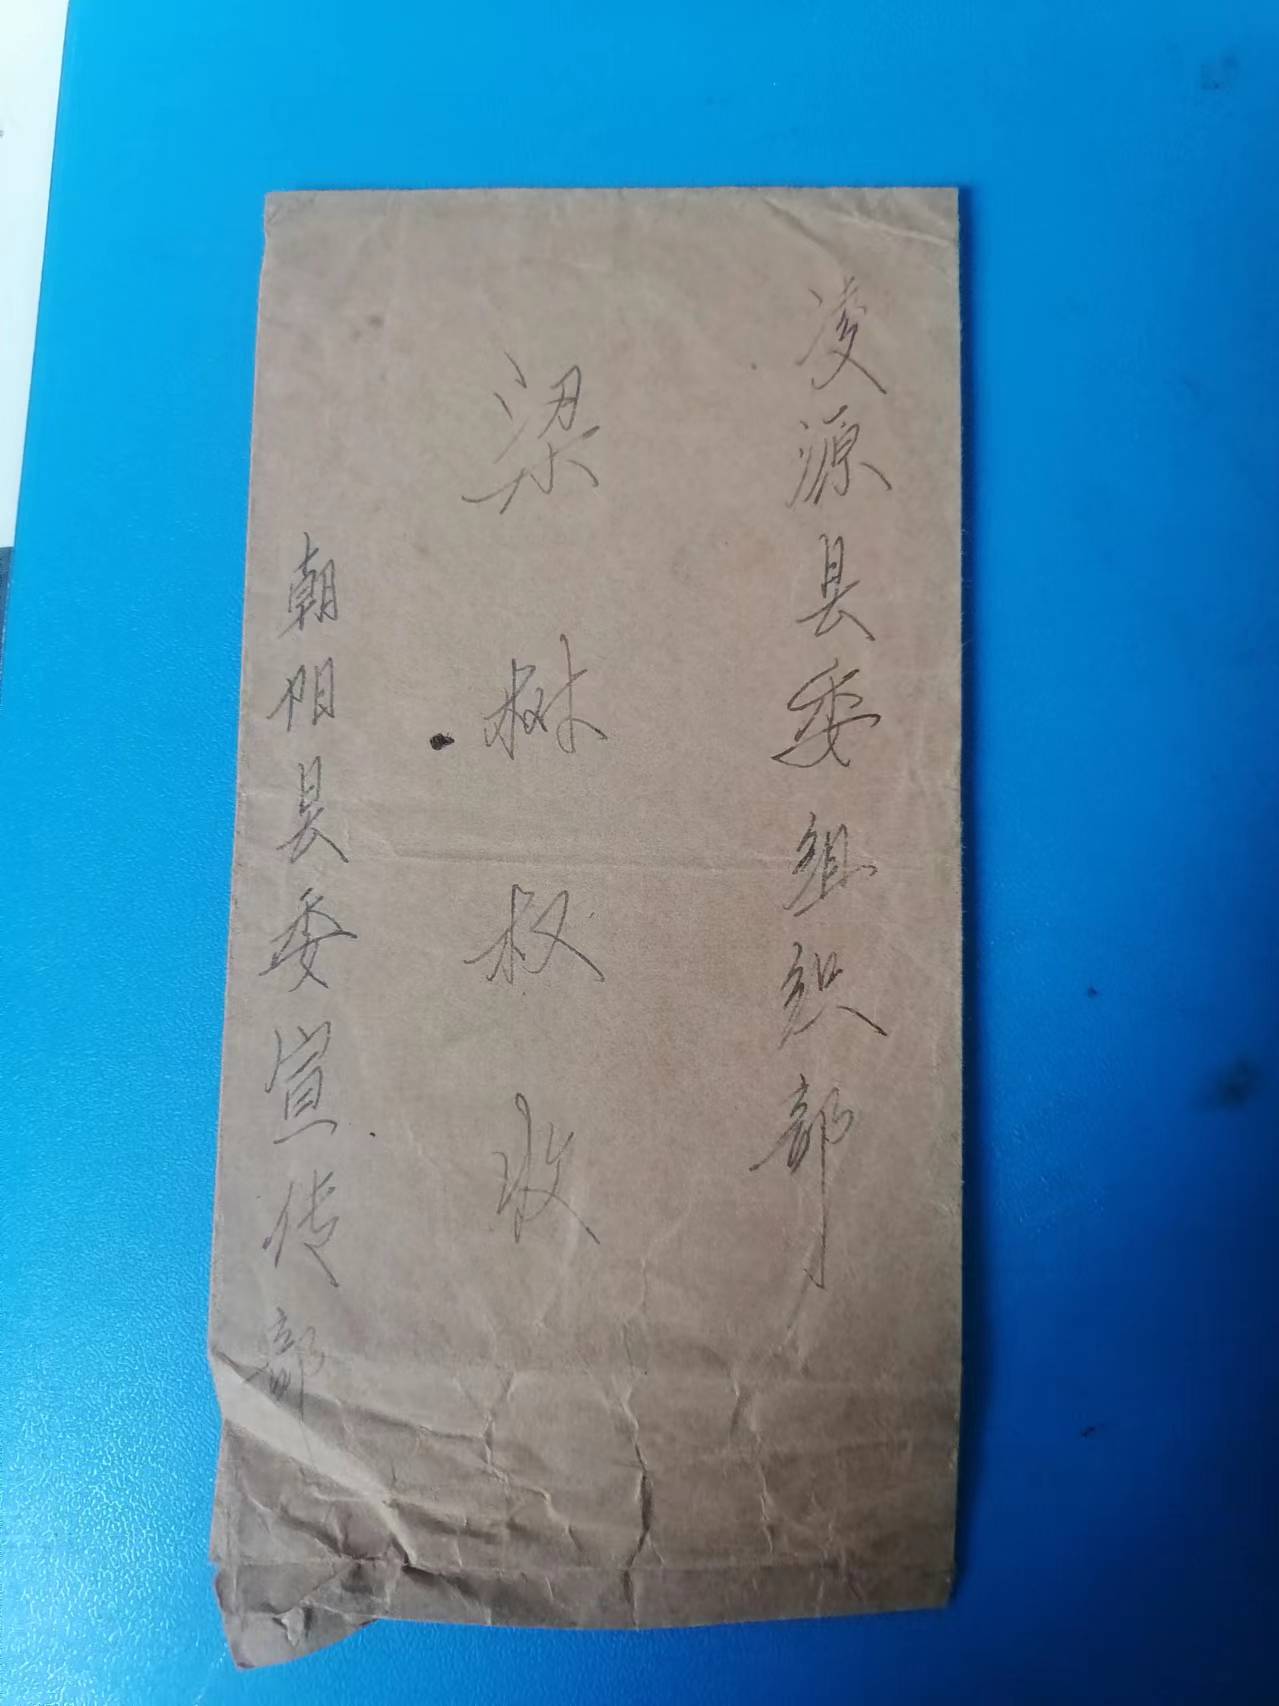 凌源县委组织部
梁树权收
朝阳县委宣传部